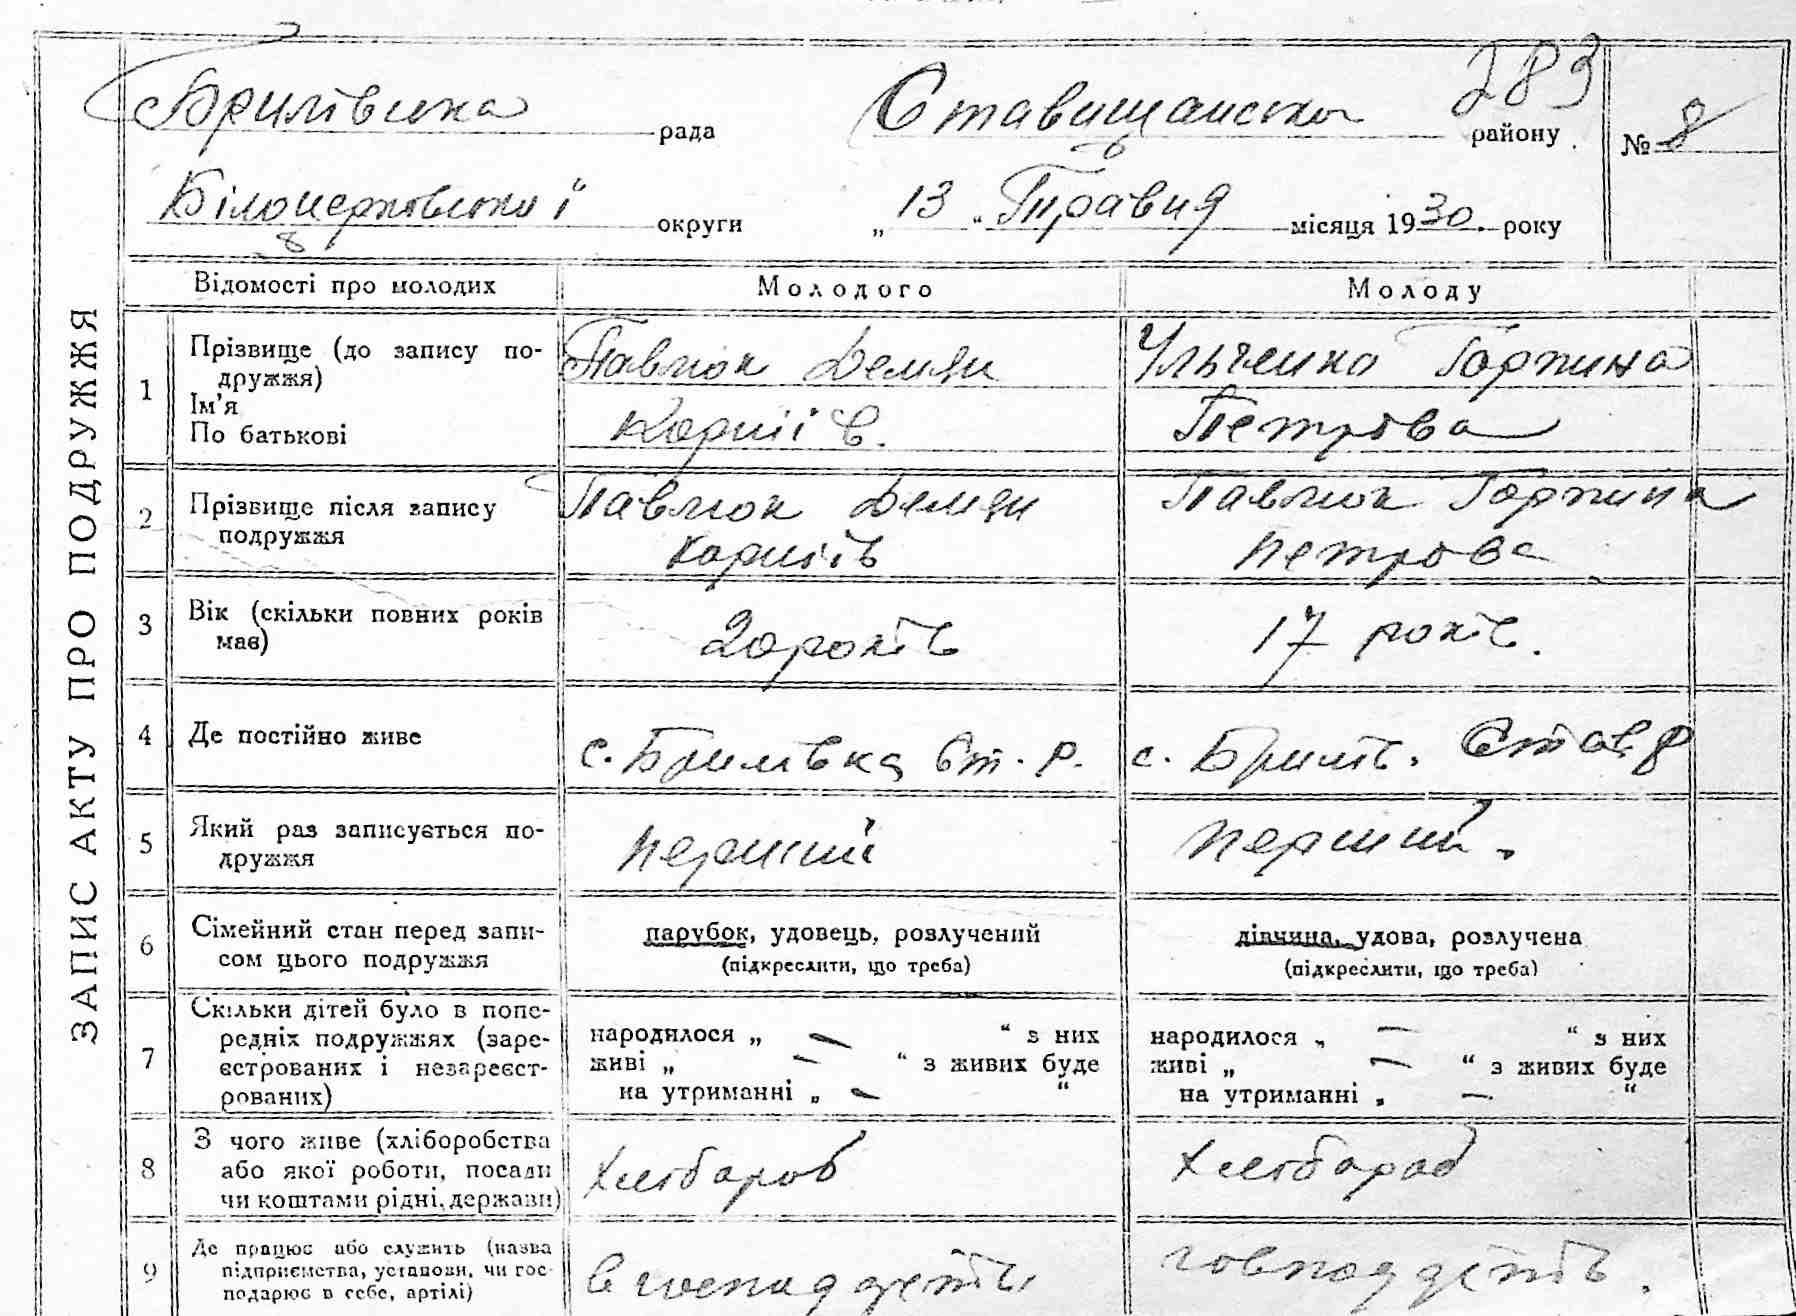 283
Бриливська рада Ставищанська району № 8
Білоцерковської округи „ 13 „ Травня місяця 1930. року
ЗАПИС АКТУ ПРО ПОДРУЖЖЯ
Відомості про молодих Молодого Молоду
1 Прізвище (до запису по-
дружжя)
Ім'я
По батькові
Павлюк Демян
Корніів.
Ільченко Горпина
Петрова
2 Прізвище після запису
подружжя
Павлюк Демян
Корніів
Павлюк Горпина
Петрова
3 Вік (скільки повних років
має)
20 років
17 років.
4 Де постійно живе
с. Бримівка Ст. р.
с. Бримів. Став р
5 Який раз записується по-
дружжя
перший
перший.
6 Сімейний стан перед запи-
сом цього подружжя
парубок, удовець, розлучений
(підкреслити, що треба)
дівчина, удова, розлучена
(підкреслити, що треба)
7 Скільки дітей було в попе-
редніх подружжях (заре-
єстрованих і незареєст-
рованих)
народилося „ — “ з них
живі „ — “ з живих буде
на утриманні „ — “
народилося „ — “ з них
живі „ — “ з живих буде
на утриманні „ — “
8 З чого живе (хліборобства
або якої роботи, посади
чи коштами рідні, держави)
Хлібороб
Хлібороб
9 Де працює або служить (назва
підприємства, установи, чи гос-
подарює в себе, артілі)